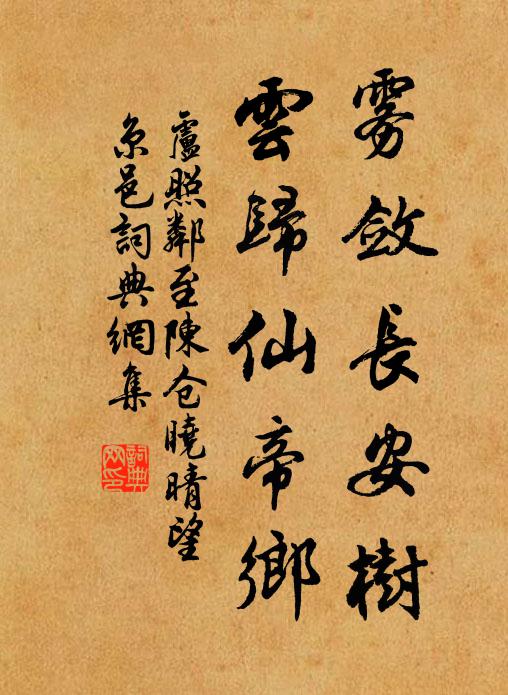 雾斂長安樹
雲歸仙帝鄉
盧照鄰至陳仓曉晴望
京邑詞典網集
詞典
网印